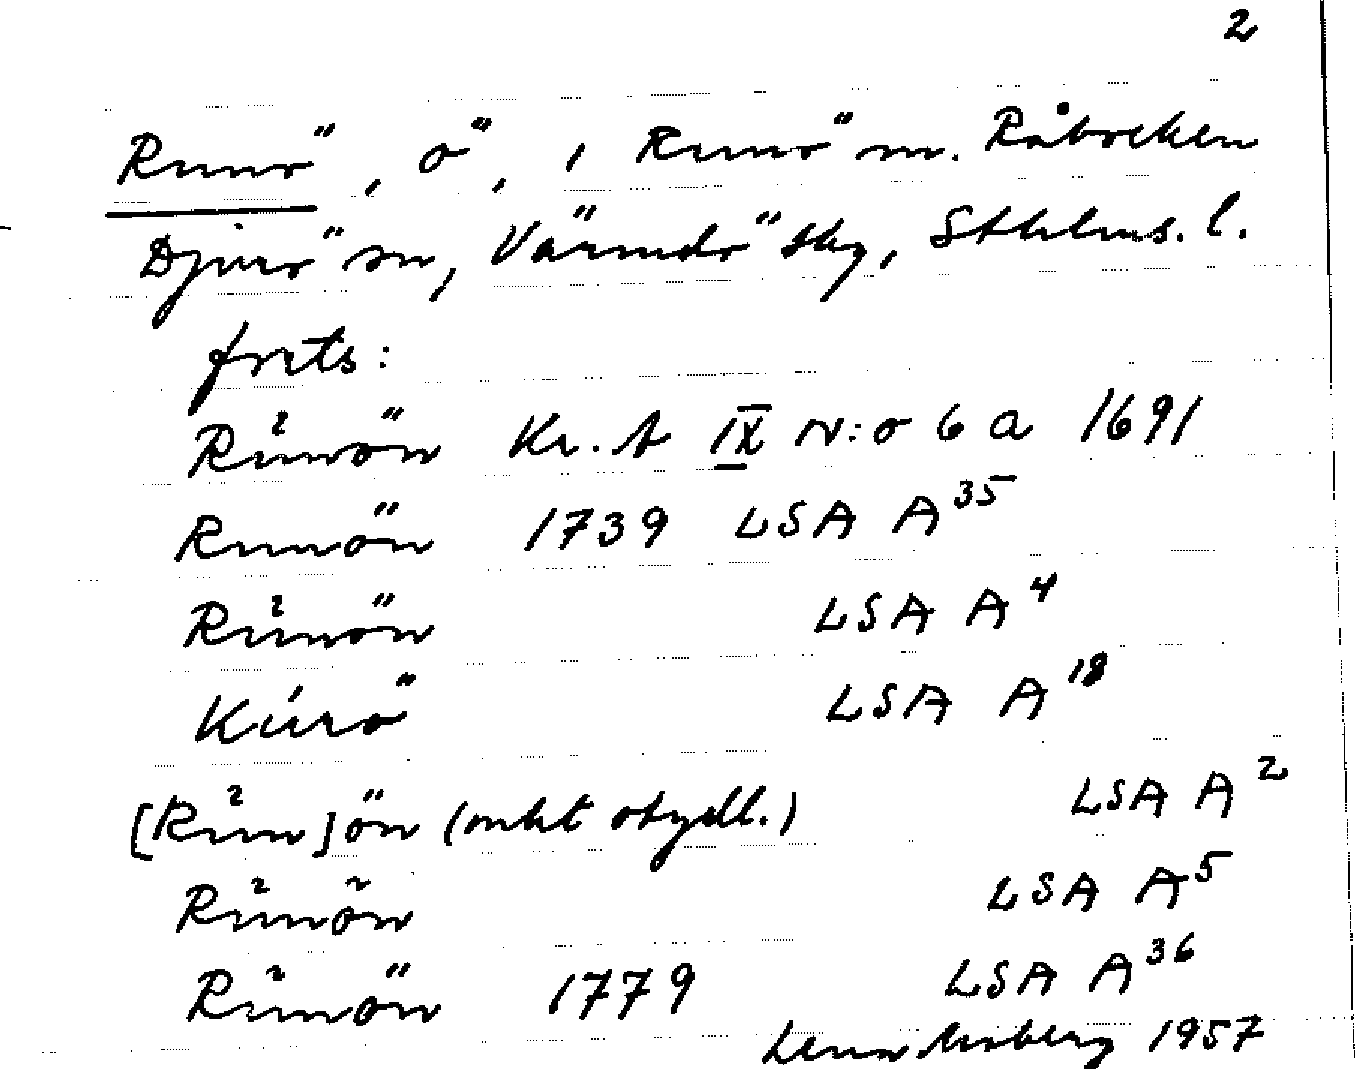 2
Runö, ö, i Runö m. Råbocken
Djurö sn, Värmdö skg, Sthlms. l.
forts:
Rŭnön Kr. A IX N:o 6 a 1691
Runön 1739 LSA A 35
Rŭnön LSA A 4
Kúrö LSA A 18
[Rŭn]ön (mkt otydl.) LSA A 2
Rŭnön LSA A 5
Rŭnön 1779 LSA A 36
Lena Moberg 1957